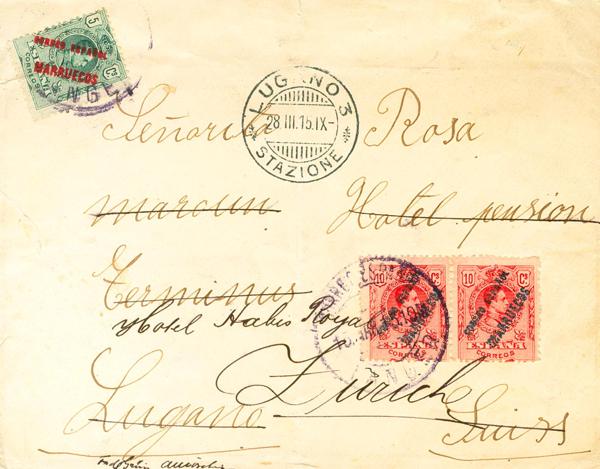 5 Cs
CORREO ESPAÑOL
MARRUECOS
CORREOS
LUGANO 3
28.III.15.IX-
STAZIONE
Señorita Rosa
marcun Hotel pension
Terminus
Hotel Habis Royal
Zurich
Lugano Suiss
10 Cs 10 Cs
CORREO ESPAÑOL
MARRUECOS
CORREOS CORREOS